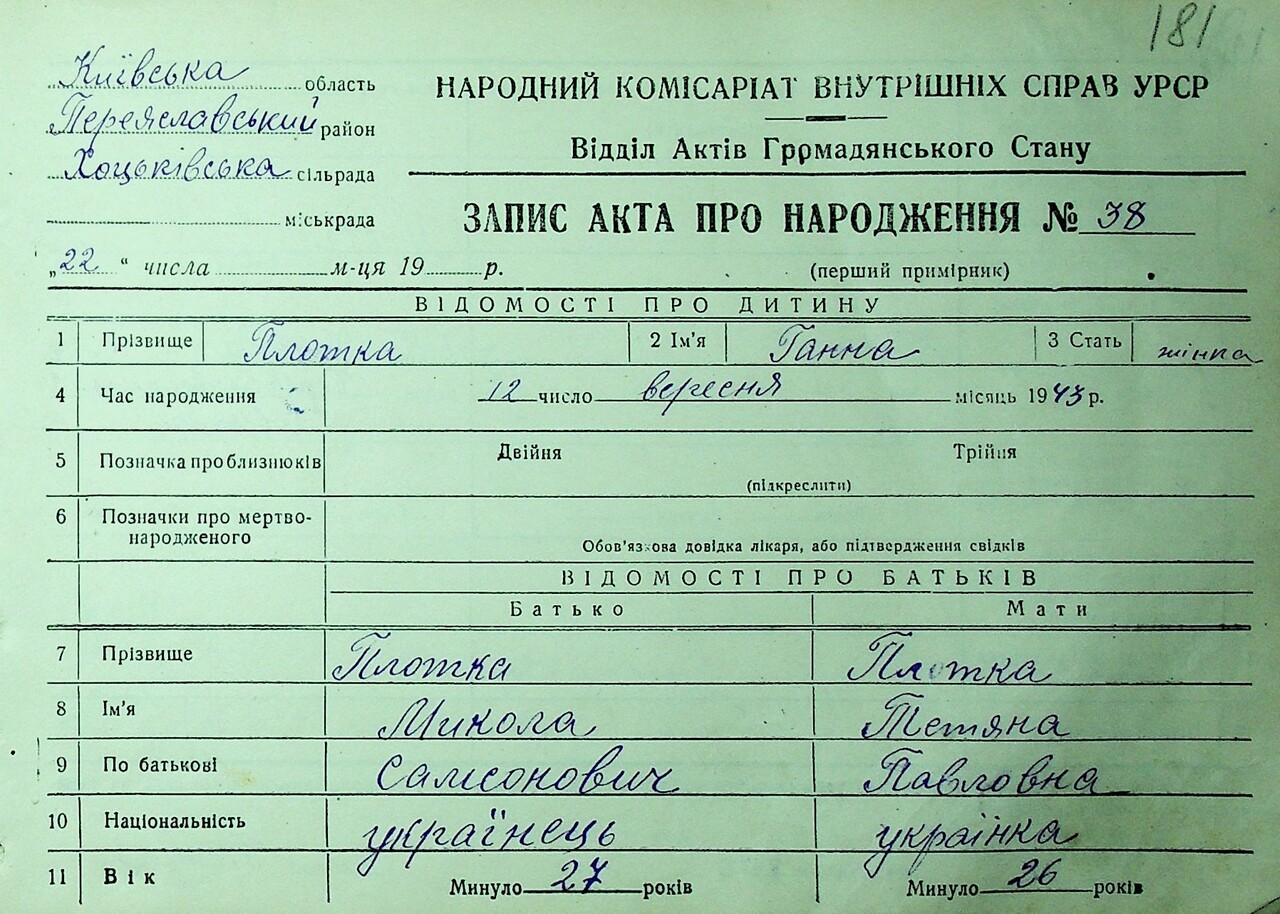 181
Київська область
Переяславський район
Хоцьківська сільрада
міськрада
НАРОДНИЙ КОМІСАРІАТ ВНУТРІШНІХ СПРАВ УРСР
Відділ Актів Громадянського Стану
ЗАПИС АКТА ПРО НАРОДЖЕННЯ № 38
„22“ числа м-ця 19 р. (перший примірник)
ВІДОМОСТІ ПРО ДИТИНУ
1 Прізвище Плотка 2 Ім'я Ганна 3 Стать жінка
4 Час народження 12 число вересня місяць 1943 р.
5 Позначка про близнюків Двійня Трійня
(підкреслити)
6 Позначки про мертво-
народженого
Обов'язкова довідка лікаря, або підтвердження свідків
ВІДОМОСТІ ПРО БАТЬКІВ
Батько Мати
7 Прізвище Плотка Плотка
8 Ім'я Микола Тетяна
9 По батькові Самсонович Павловна
10 Національність українець українка
11 Вік Минуло 27 років Минуло 26 років